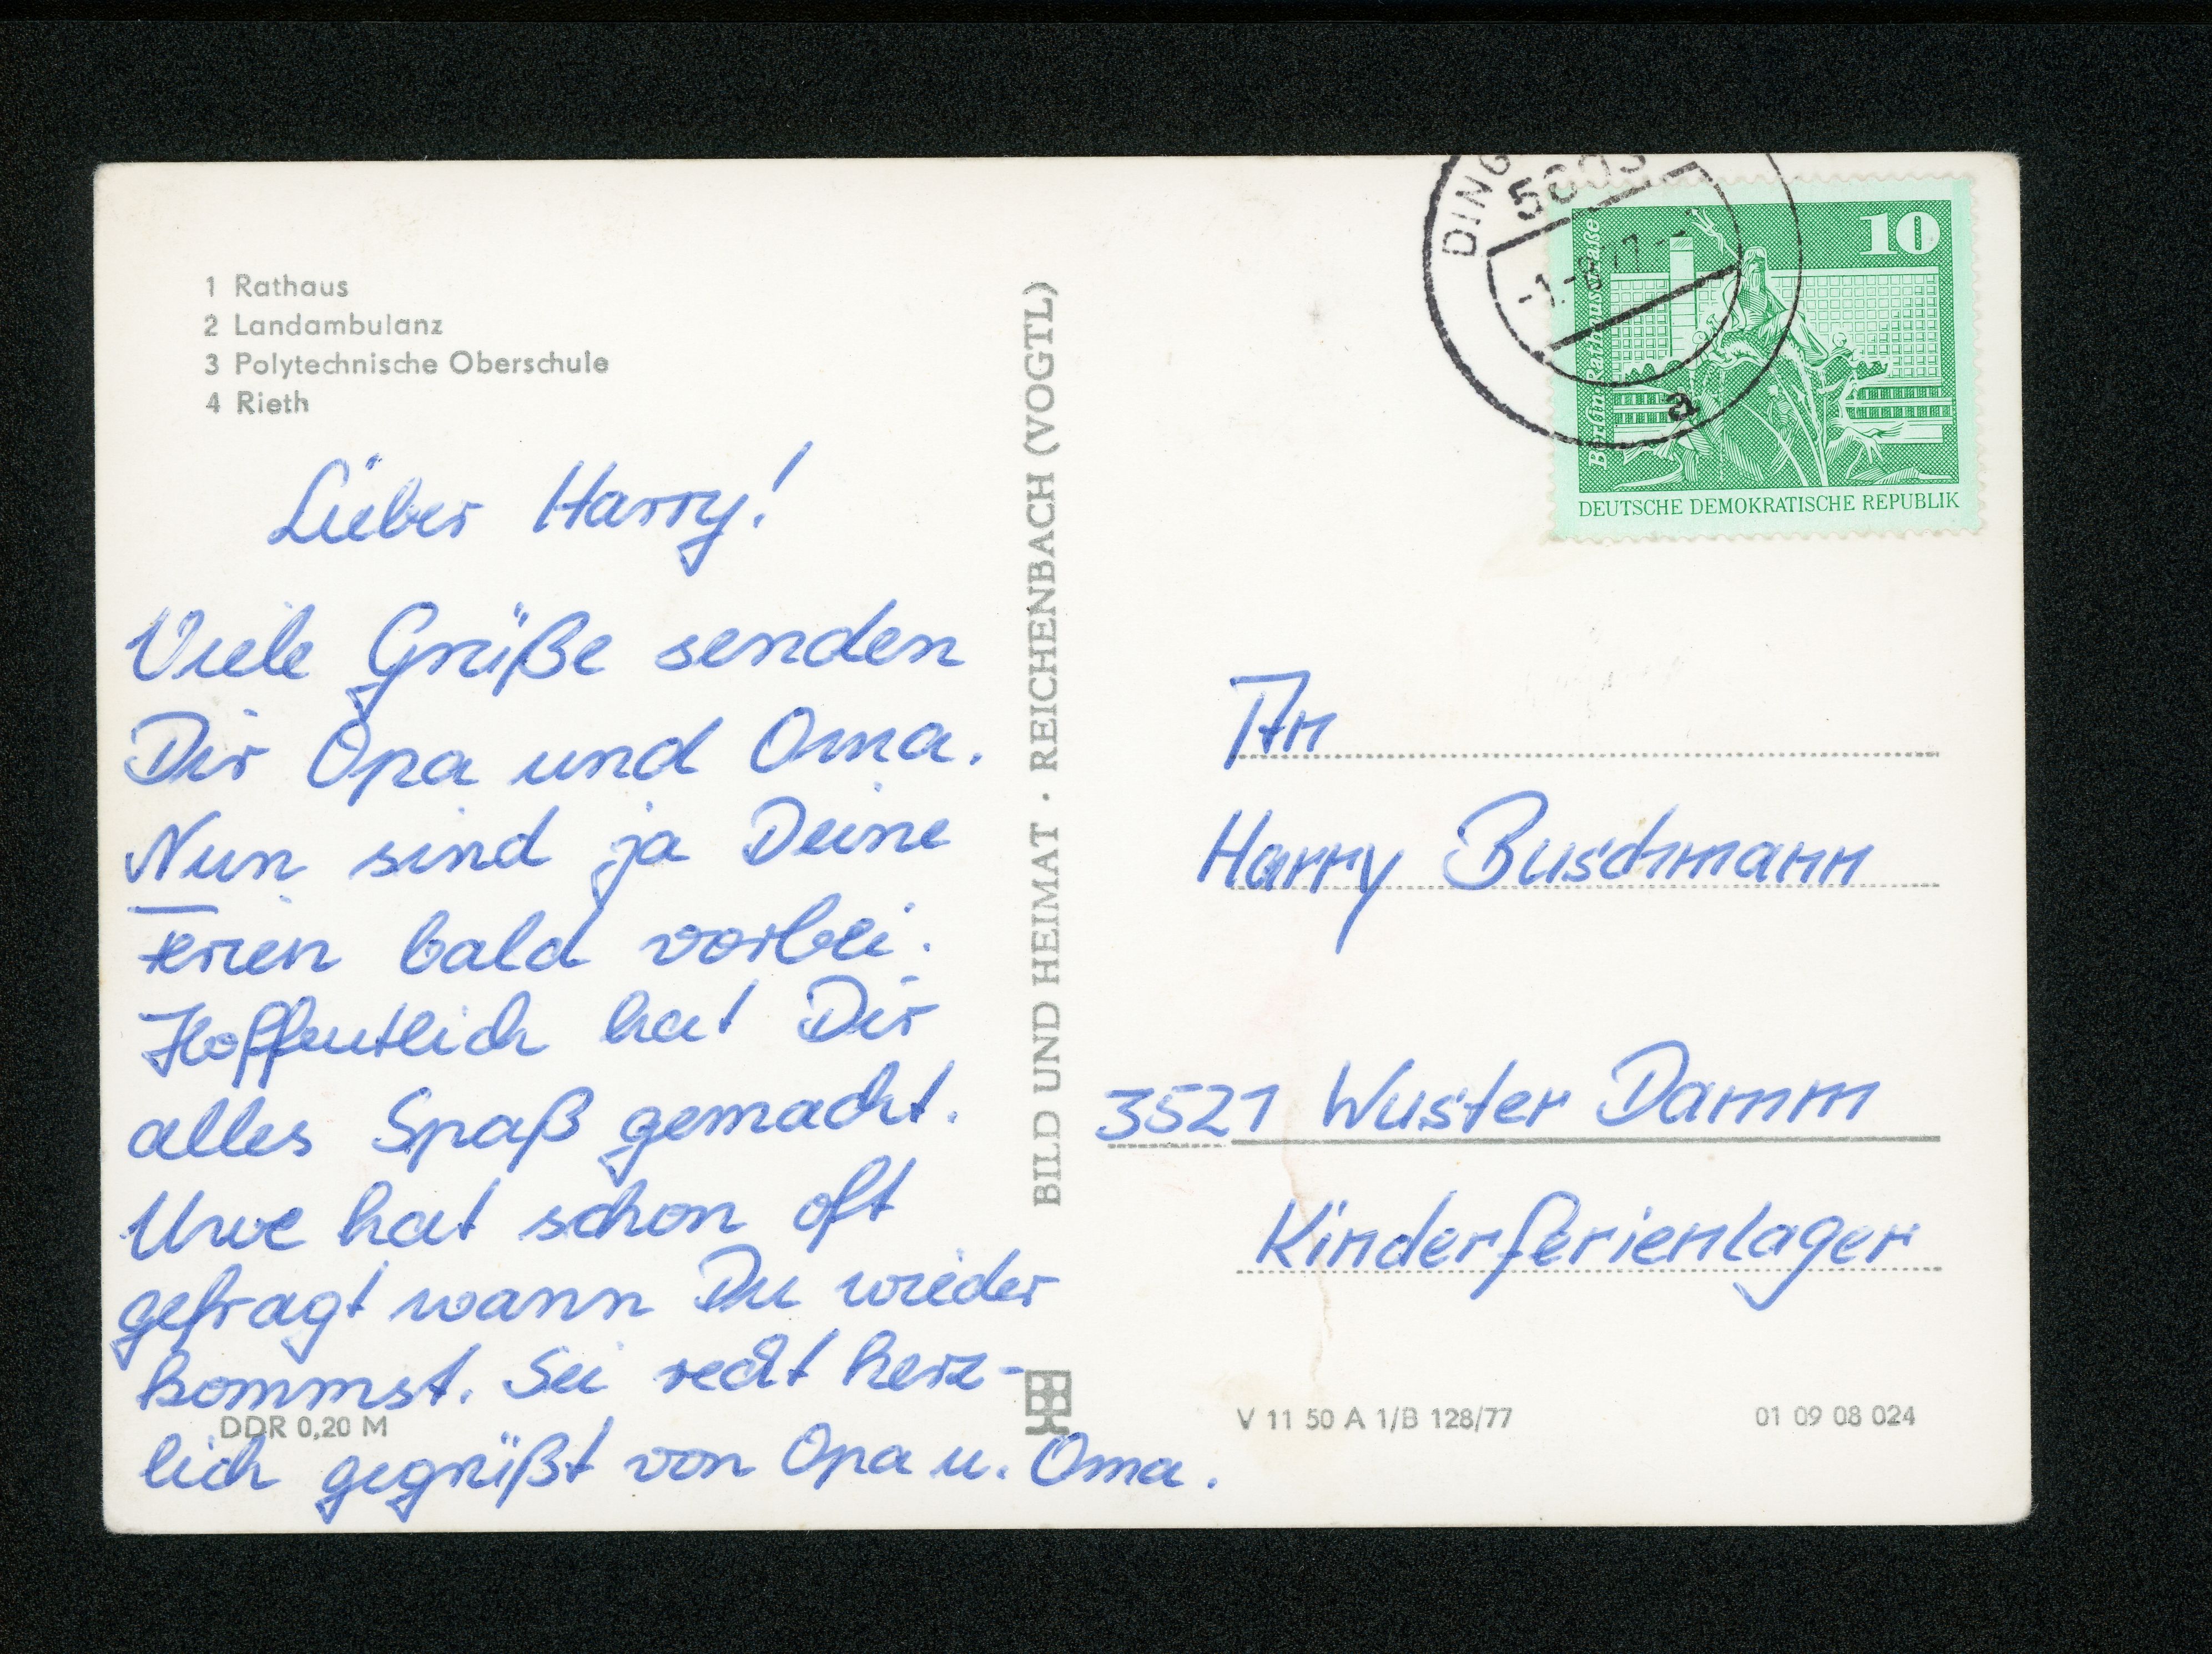 1 Rathaus
2 Landambulanz
3 Polytechnische Oberschule
4 Rieth
Lieber Harry!
Viele Grüße senden
Dir Opa und Oma.
Nun sind ja Deine
Ferien bald vorbei.
Hoffentlich hat Dir
alles Spaß gemacht.
Uwe hat schon oft
gefragt wann Du wieder
kommst. Sei recht herz-
DDR 0,20 M
lich gegrüßt von Opa u. Oma.
BILD UND HEIMAT · REICHENBACH (VOGTL)
a
10
Berlin Rathausstraße
DEUTSCHE DEMOKRATISCHE REPUBLIK
An
Harry Buschmann
3521 Wuster Damm
Kinderferienlager
V 11 50 A 1/B 128/77
01 09 08 024